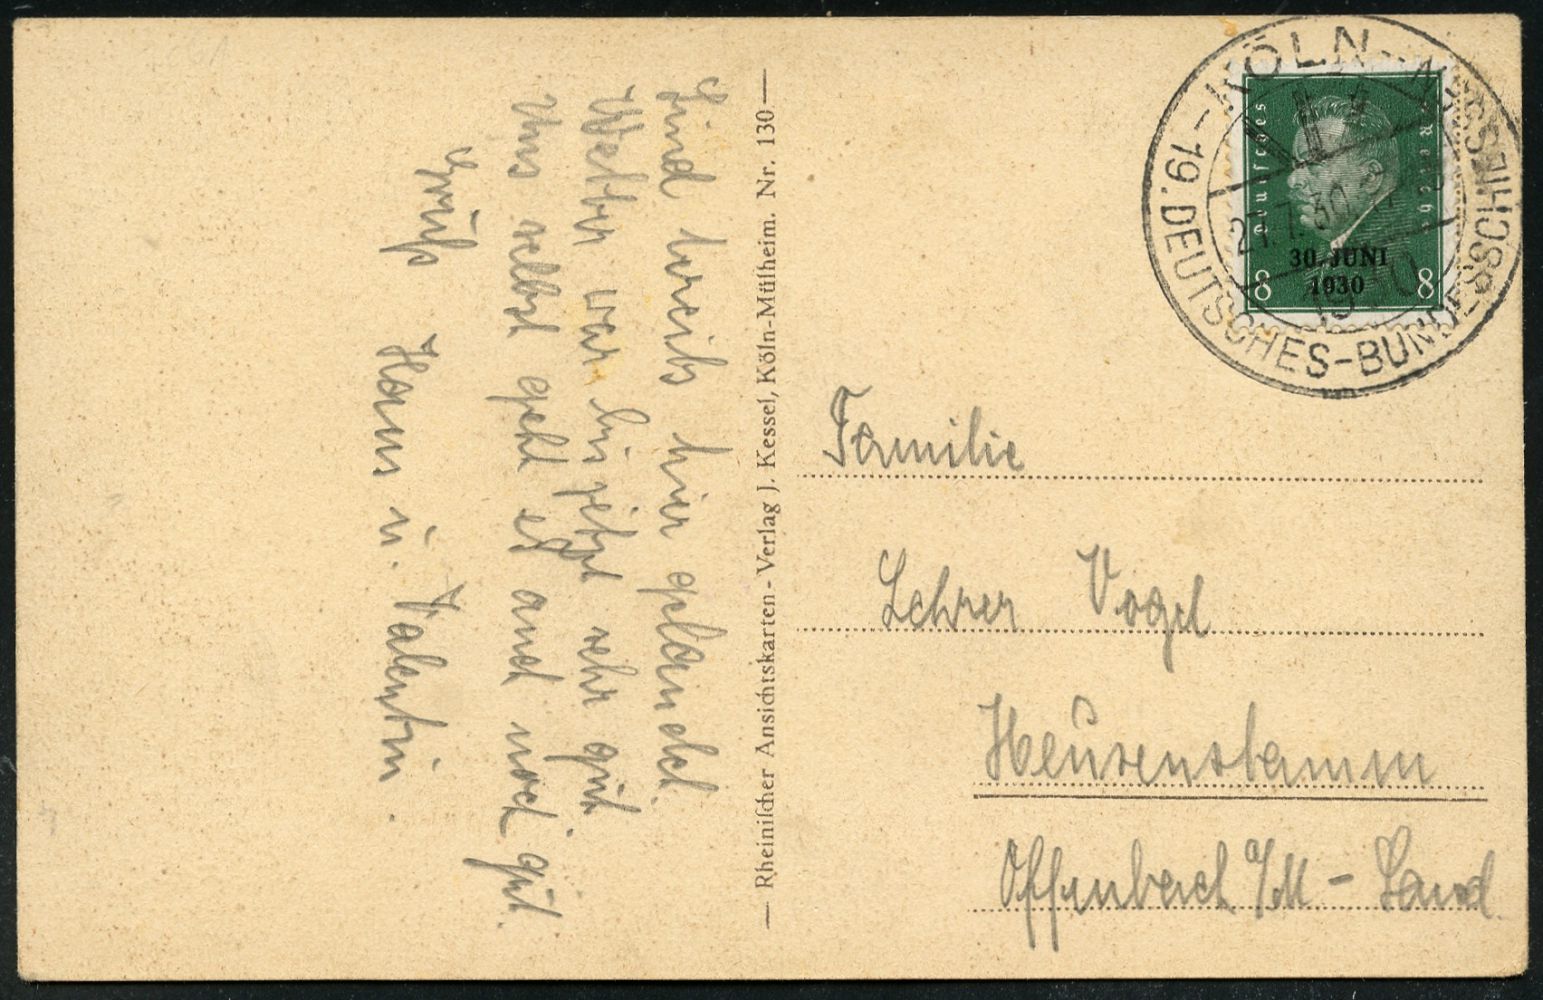 Sind bereits hier gelandet.
Wetter war bis jetzt sehr gut
Uns selbst geht es auch noch gut.
Gruß
Hans u. Valentin.
— Rheinischer Ansichtskarten - Verlag J. Kessel, Köln-Mülheim. Nr. 130 —
KÖLN-MESSE
19. DEUTSCHES-BUNDESSCHIESSEN
Deutsches Reich
30. JUNI
1930
8 8
Familie
Lehrer Vogel
Heusenstamm
Offenbach a/M - Land.